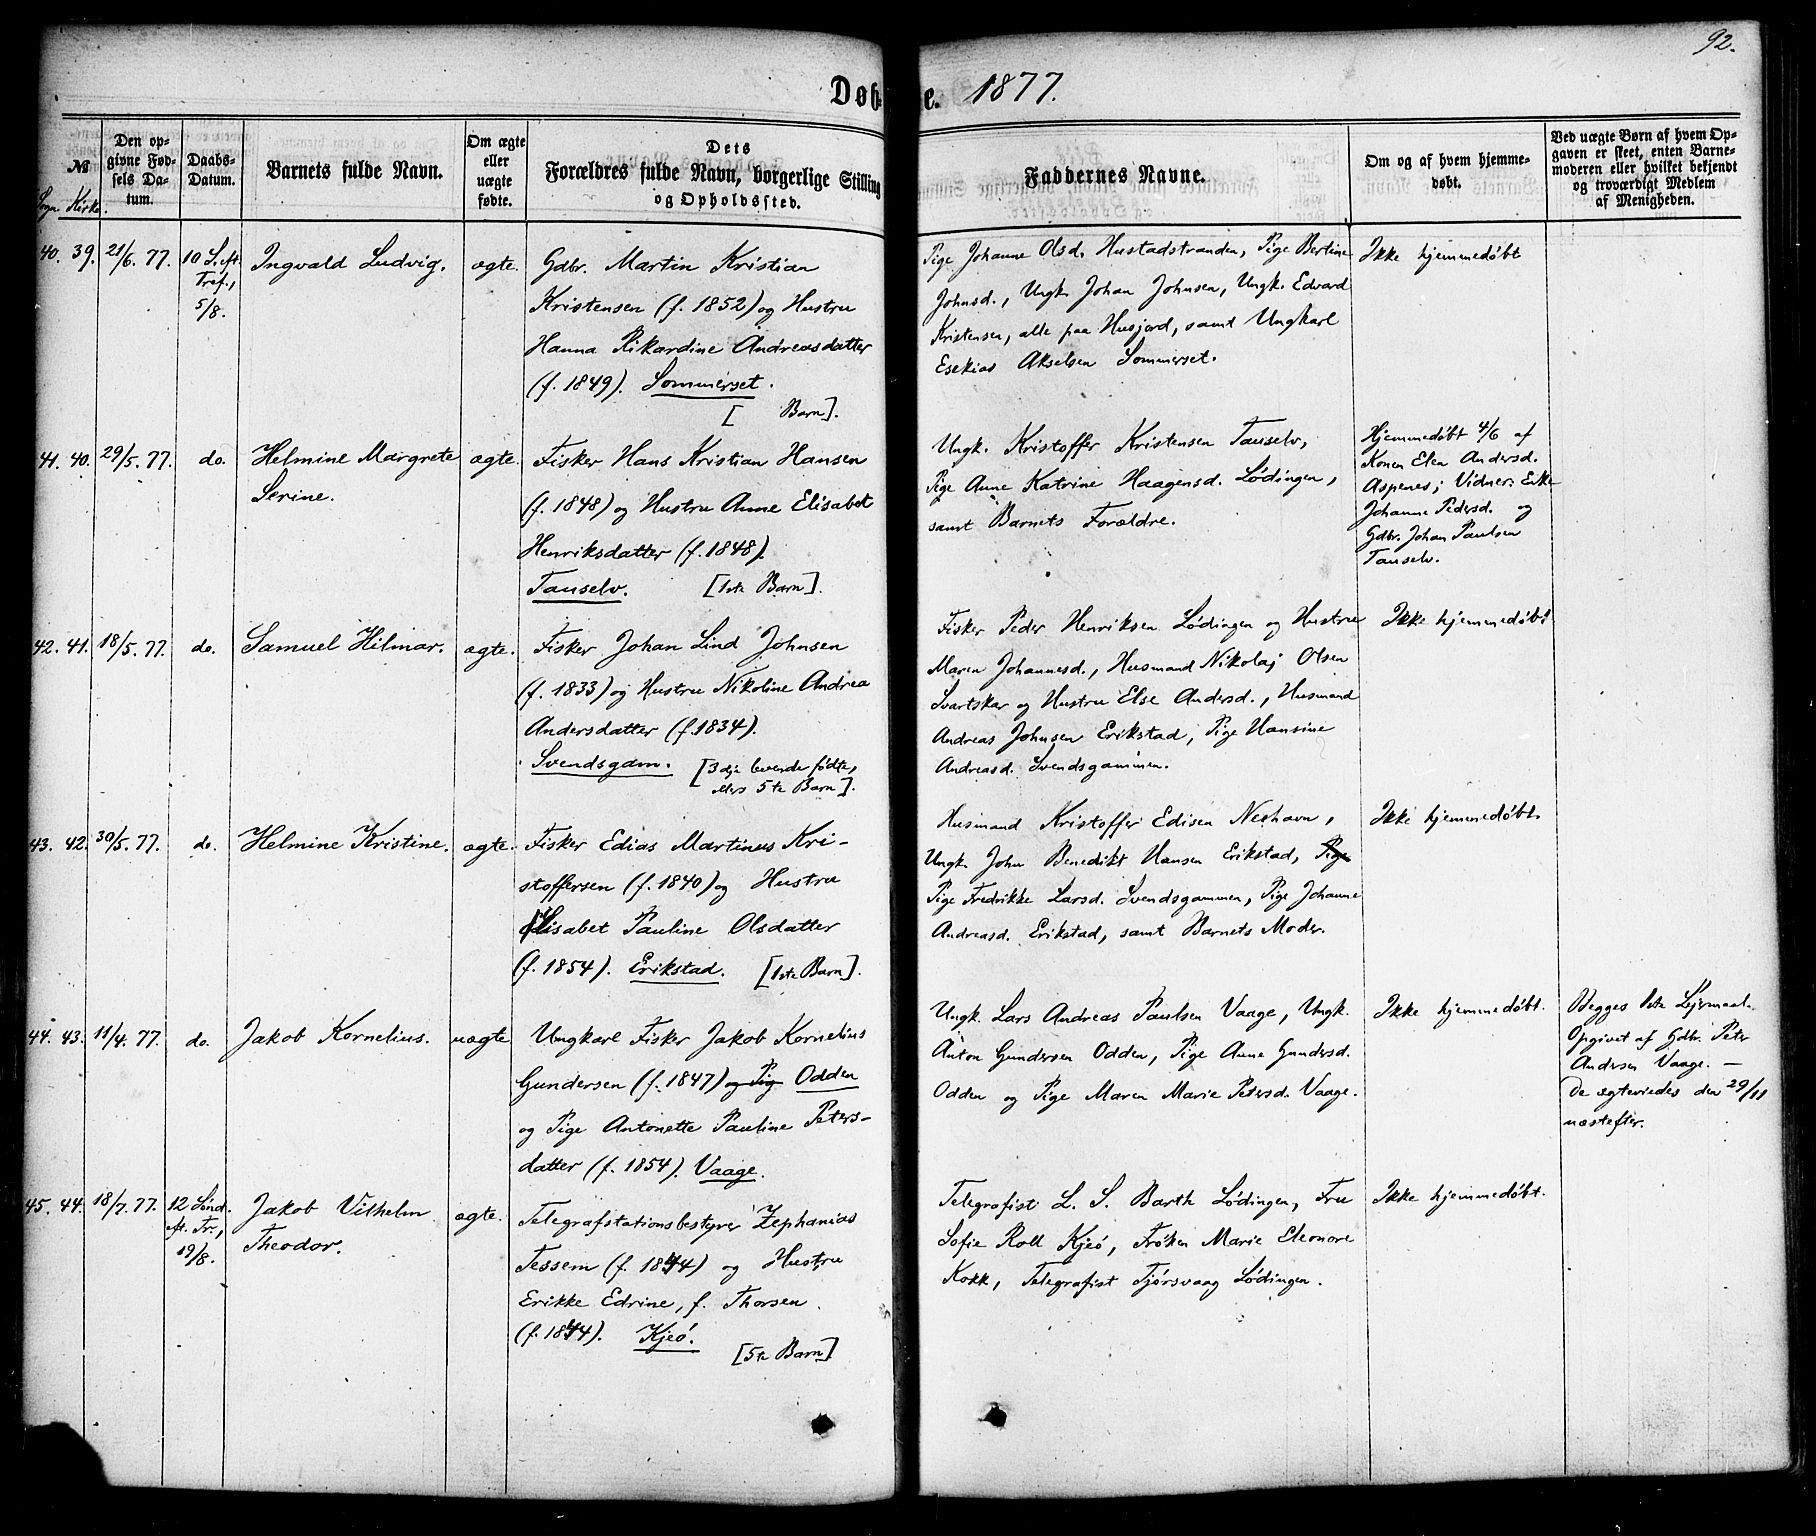 92.
Døbte. 1877.
№
Sogn Kirke.
Den op-
givne Fød-
sels Da-
tum.
Daabs-
Datum.
Barnets fulde Navn.
Om ægte
eller
uægte
fødte.
Dets
Forældres fulde Navn, borgerlige Stilling
og Opholdssted.
Faddernes Navne.
Om og af hvem hjemme-
døbt.
Ved uægte Børn af hvem Op-
gaven er skeet, enten Barne-
moderen eller hvilket bekjendt
og troværdigt Medlem
af Menigheden.
40. 39. 21/6. 77.
10 S. eft.
Tref.,
5/8.
Ingvald Ludvig.
ægte.
Gdbr. Martin Kristian
Kristensen (f. 1852) og Hustru
Hanna Rikardine Andreasdatter
(f. 1849). Sommerset.
[ Barn].
Pige Johanne Olsd. Hustadstranden, Pige Bertine
Johnsd., Ungk. Johan Johnsen, Ungk. Edvard
Kristensen, alle paa Husjord, samt Ungkarl
Esekias Akselsen Sommerset.
Ikke hjemmedøbt
41. 40. 29/5. 77.
do.
Helmine Margrete
Serine.
ægte.
Fisker Hans Kristian Hansen
(f. 1848) og Hustru Anne Elisabet
Henriksdatter (f. 1848).
Tauselv. [1ste Barn].
Ungk. Kristoffer Kristensen Tauselv,
Pige Anne Katrine Haagensd. Lødingen,
samt Barnets Forældre.
Hjemmedøbt 4/6 af
Konen Elen Andersd.
Aspenes; Vidner: Enke
Johanne Pedersd. og
Gdbr. Johan Paulsen
Tauselv.
42. 41. 18/5. 77.
do.
Samuel Hilmar.
ægte.
Fisker Johan Lind Johnsen
(f. 1833) og Hustru Nikoline Andrea
Andersdatter (f. 1834).
Svendsgam. [3dje levende fødte,
ellers 5te Barn].
Fisker Peder Henriksen Lødingen og Hustru
Maren Johannesd., Husmand Nikolaj Olsen
Svartskar og Hustru Else Andersd., Husmand
Andreas Johnsen Erikstad, Pige Hansine
Andreasd. Svendsgammen.
Ikke hjemmedøbt
43. 42. 30/5. 77.
do.
Helmine Kristine.
ægte.
Fisker Edias Martinus Kri-
stoffersen (f. 1840) og Hustru
Elisabet Pauline Olsdatter
(f. 1854). Erikstad. [1ste Barn].
Husmand Kristoffer Edisen Neshavn,
Ungk. John Benedikt Hansen Erikstad, Pige
Pige Fredrikke Larsd. Svendsgammen, Pige Johanne
Andreasd. Erikstad, samt Barnets Moder.
Ikke hjemmedøbt.
44. 43. 11/4. 77.
do.
Jakob Kornelius.
uægte
Ungkarl Fisker Jakob Kornelius
Gundersen (f. 1847) og Pig Odden
og Pige Antonette Pauline Peters-
datter (f. 1854). Vaage.
Ungk. Lars Andreas Paulsen Vaage, Ungk.
Anton Gundersen Odden, Pige Anne Gundersd.
Odden og Pige Maren Marie Petersd. Vaage.
Ikke hjemmedøbt.
Begges 1ste Lejermaal.
Opgivet af Gdbr. Peter
Andersen Vaage. —
De ægteviedes den 29/11
næstefter.
45. 44. 18/7. 77.
12 Sønd.
eft. Tr.,
19/8.
Jakob Vilhelm
Theodor.
ægte.
Telegrafstationsbestyrer Zephanias
Tessem (f. 1844) og Hustru
Erikke Edrine, f. Thorsen.
(f. 1844). Kjeø.
[5te Barn]
Telegrafist L. S. Barth Lødingen, Fru
Sofie Roll Kjeø, Frøken Marie Eleonore
Kokk, Telegrafist Tjørsvaag Lødingen.
Ikke hjemmedøbt.